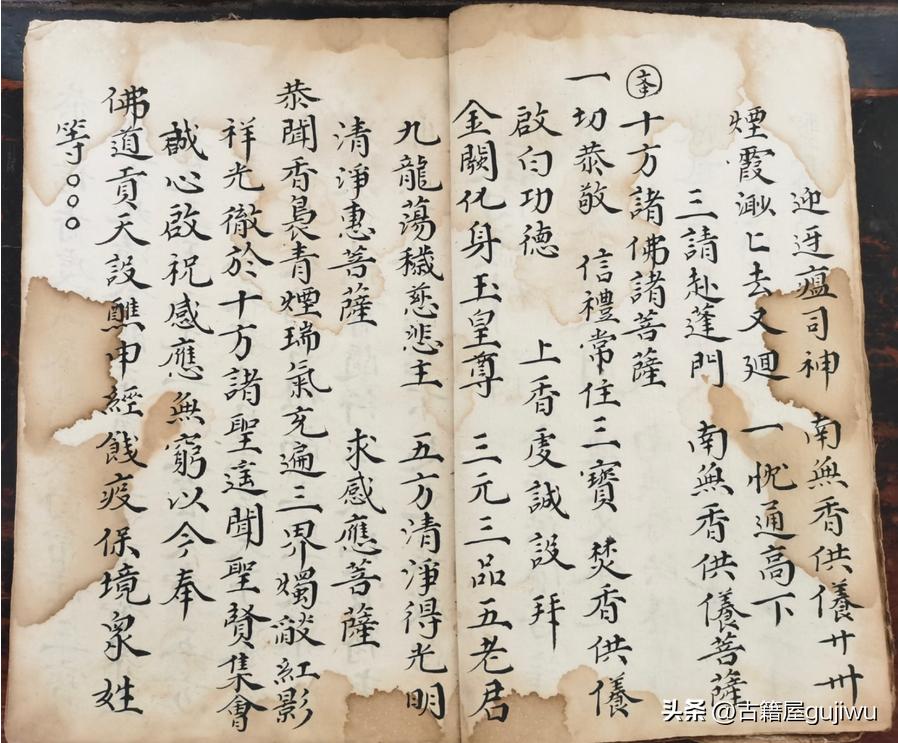 迎迓瘟司神　南無香供儀廾卅
煙霞渺〻去又廻　一忱通高下
三請赴蓬門　南無香供儀菩薩
十方諸佛諸菩薩
一切恭敬　信禮常住三寳　焚香供儀
啟白功德　上香虔誠設拜
金闕化身玉皇尊　三元三品五老君
九龍蕩穢慈悲主　五方清淨得光明
清淨惠菩薩　求感應菩薩
恭聞香裊青煙瑞氣充遍三界燭皷紅影
祥光徹於十方諸聖遥聞聖賢集會
誠心啟祝感應無窮以今奉
佛道貢天設醮申經餞疫保境衆姓
等○○○
头条 @古籍屋gujiwu